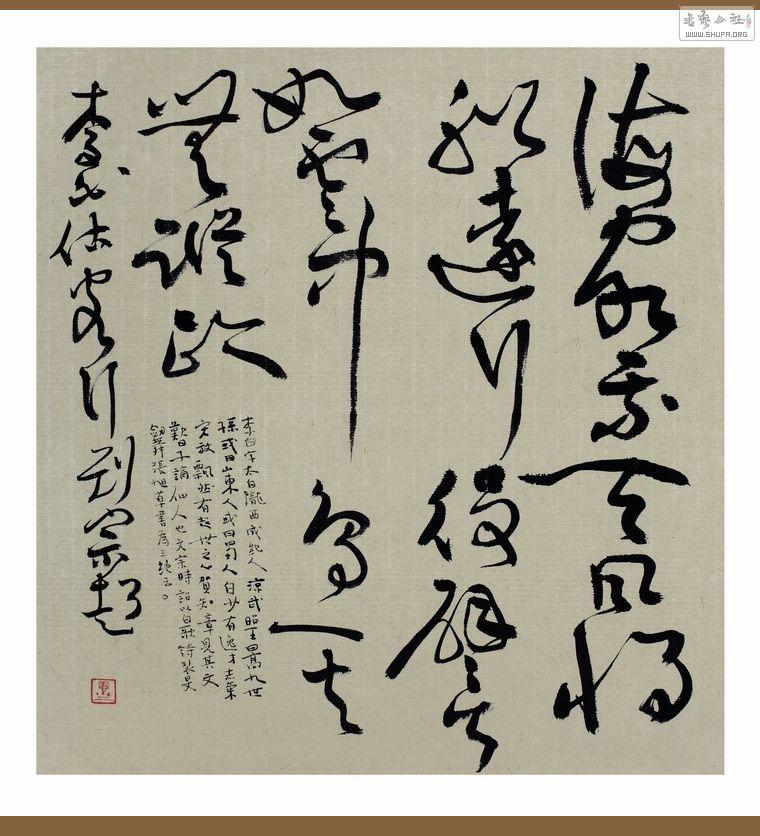 海客乘天風將
船遠行役譬
如雲中鳥一去
無蹤跡
李白字太白隴西成紀人涼武昭王暠九世
孫或曰山東人或曰蜀人白少有逸才志氣
宏放飄然有超世之心賀知章見其文
歎曰子謫仙人也文宗時詔以白歌詩裴旻
劍舞張旭草書為三絕云。
李白估客行 劉宗超
书艺公社
WWW.SHUFA.ORG